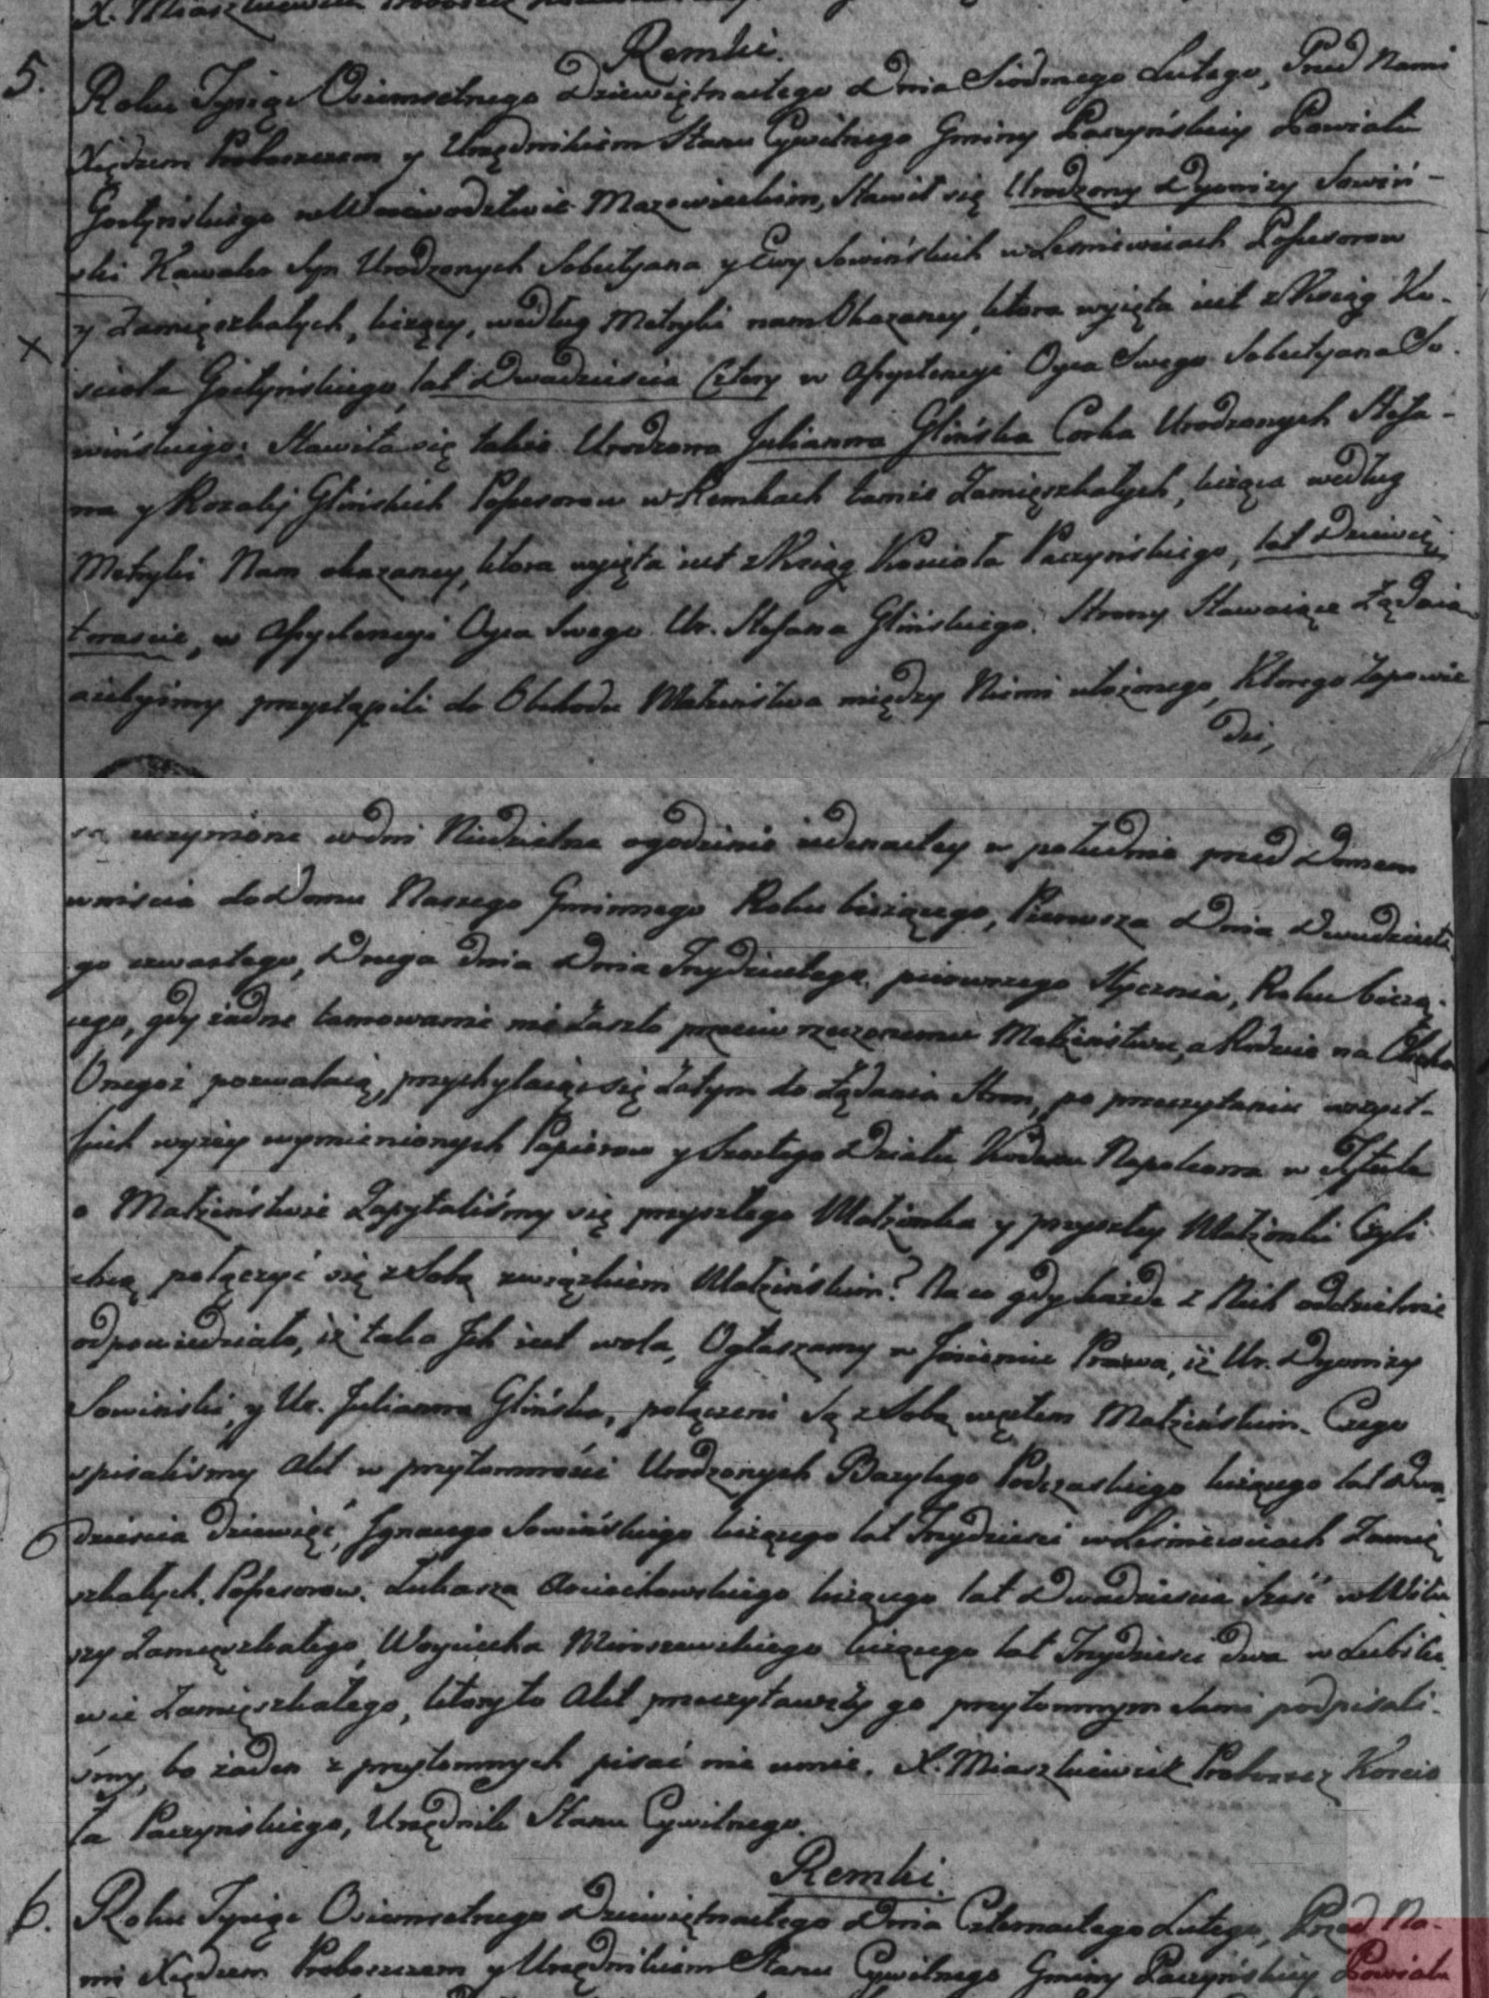 X. Miaszkiewicz Proboszcz
Remki.
5. Roku Tysiąc Osiemsetnego Dziewiętnastego Dnia Siódmego Lutego, Przed Nami
Xiędzem Proboszczem y Urzędnikiem Stanu Cywilnego Gminy Paczyńskiey Powiatu
Gostyńskiego w Woiewodztwie Mazowieckim, stawił się Urodzony Dyonizy Sowiń-
ski Kawaler Syn Urodzonych Sobestyana y Ewy Sowińskich w Lesniewicach Possesorow
y Zamięszkałych, liczący, według Metryki nam Okazaney, ktora wyięta iest z Xsiąg Ko-
scioła Gostyńskiego, lat Dwadziescia Cztery w Assystencyi Oyca Swego Sobestyana So-
wińskiego: Stawiła się także Urodzona Julianna Glińska Corka Urodzonych Stefa-
na y Rozalij Glińskich Possesorow w Remkach tamże Zamięszkałych, licząca według
Metryki Nam okazaney, ktora wyięta iest z Xsiąg Koscioła Paczyńskiego, lat Dziewię-
tnascie, w Assystencyi Oyca Swego Ur. Stefana Glińskiego. Strony Stawaiące Żądaią
ażebyśmy przystąpili do Obchodu Małżeństwa między Niemi ułożonego, Ktorego Zapowie
dzi,
są uczynione w dni Niedzielne o godzinie iedenastey w południe przed Domem
wniscia do Domu Naszego Gminnego Roku bieżącego, Pierwsza Dnia Dwudzieste
go czwartego, Druga dnia Dnia Trzydziestego pierwszego Stycznia, Roku bieżą-
cego, gdy żadne tamowanie nie Zaszło przeciw rzeczonemu Małżeństwu, a Rodzice na Obchod
Onegoż pozwalaią, przychylaiąc się Zatym do Żądania Stron, po przeczytaniu wszyst-
kich wyżey wymienionych Papierow y Szostego Działu Kodexu Napoleona w Tytule
o Małżeństwie Zapytaliśmy się przyszłego Małżonka y przyszłey Małżonki Czyli
chcą połączyć się z Sobą związkiem Małżeńskim? Na co gdy każde z Nich oddzielnie
odpowiedziało, iż taka Jch iest wola, Ogłaszamy w Jmieniu Prawa, iż Ur. Dyonizy
Sowiński, y Ur. Julianna Glińska, połączeni Są z Sobą węzłem Małżeńskim. Czego
spisaliśmy Akt w przytomności Urodzonych Bazylego Podczaskiego liczącego lat Dwa
dziescia dziewięć, Jgnacego Sowińskiego liczącego lat Trzydziesci w Lesniewicach Zamię
szkałych Possesorow. Łukasza Ościechowskiego liczącego lat Dwadziescia Sześć w
szy Zamięszkałego, Woyciecha Mroszewskiego liczącego lat Trzydziesci dwa w Lubiko
wie Zamięszkałego, ktory to Akt przeczytawszy go przytomnym Sami podpisali-
śmy, bo żaden z przytomnych pisać nie umie. X. Miaszkiewicz Proboszcz Koscio
ła Paczyńskiego, Urzędnik Stanu Cywilnego.
Remki.
6. Roku Tysiąc Osiemsetnego Dziewiętnastego Dnia Czternastego Lutego, Przed Na-
mi Xiędzem Proboszczem y Urzędnikiem Stanu Cywilnego Gminy Paczyńskiey Powiatu